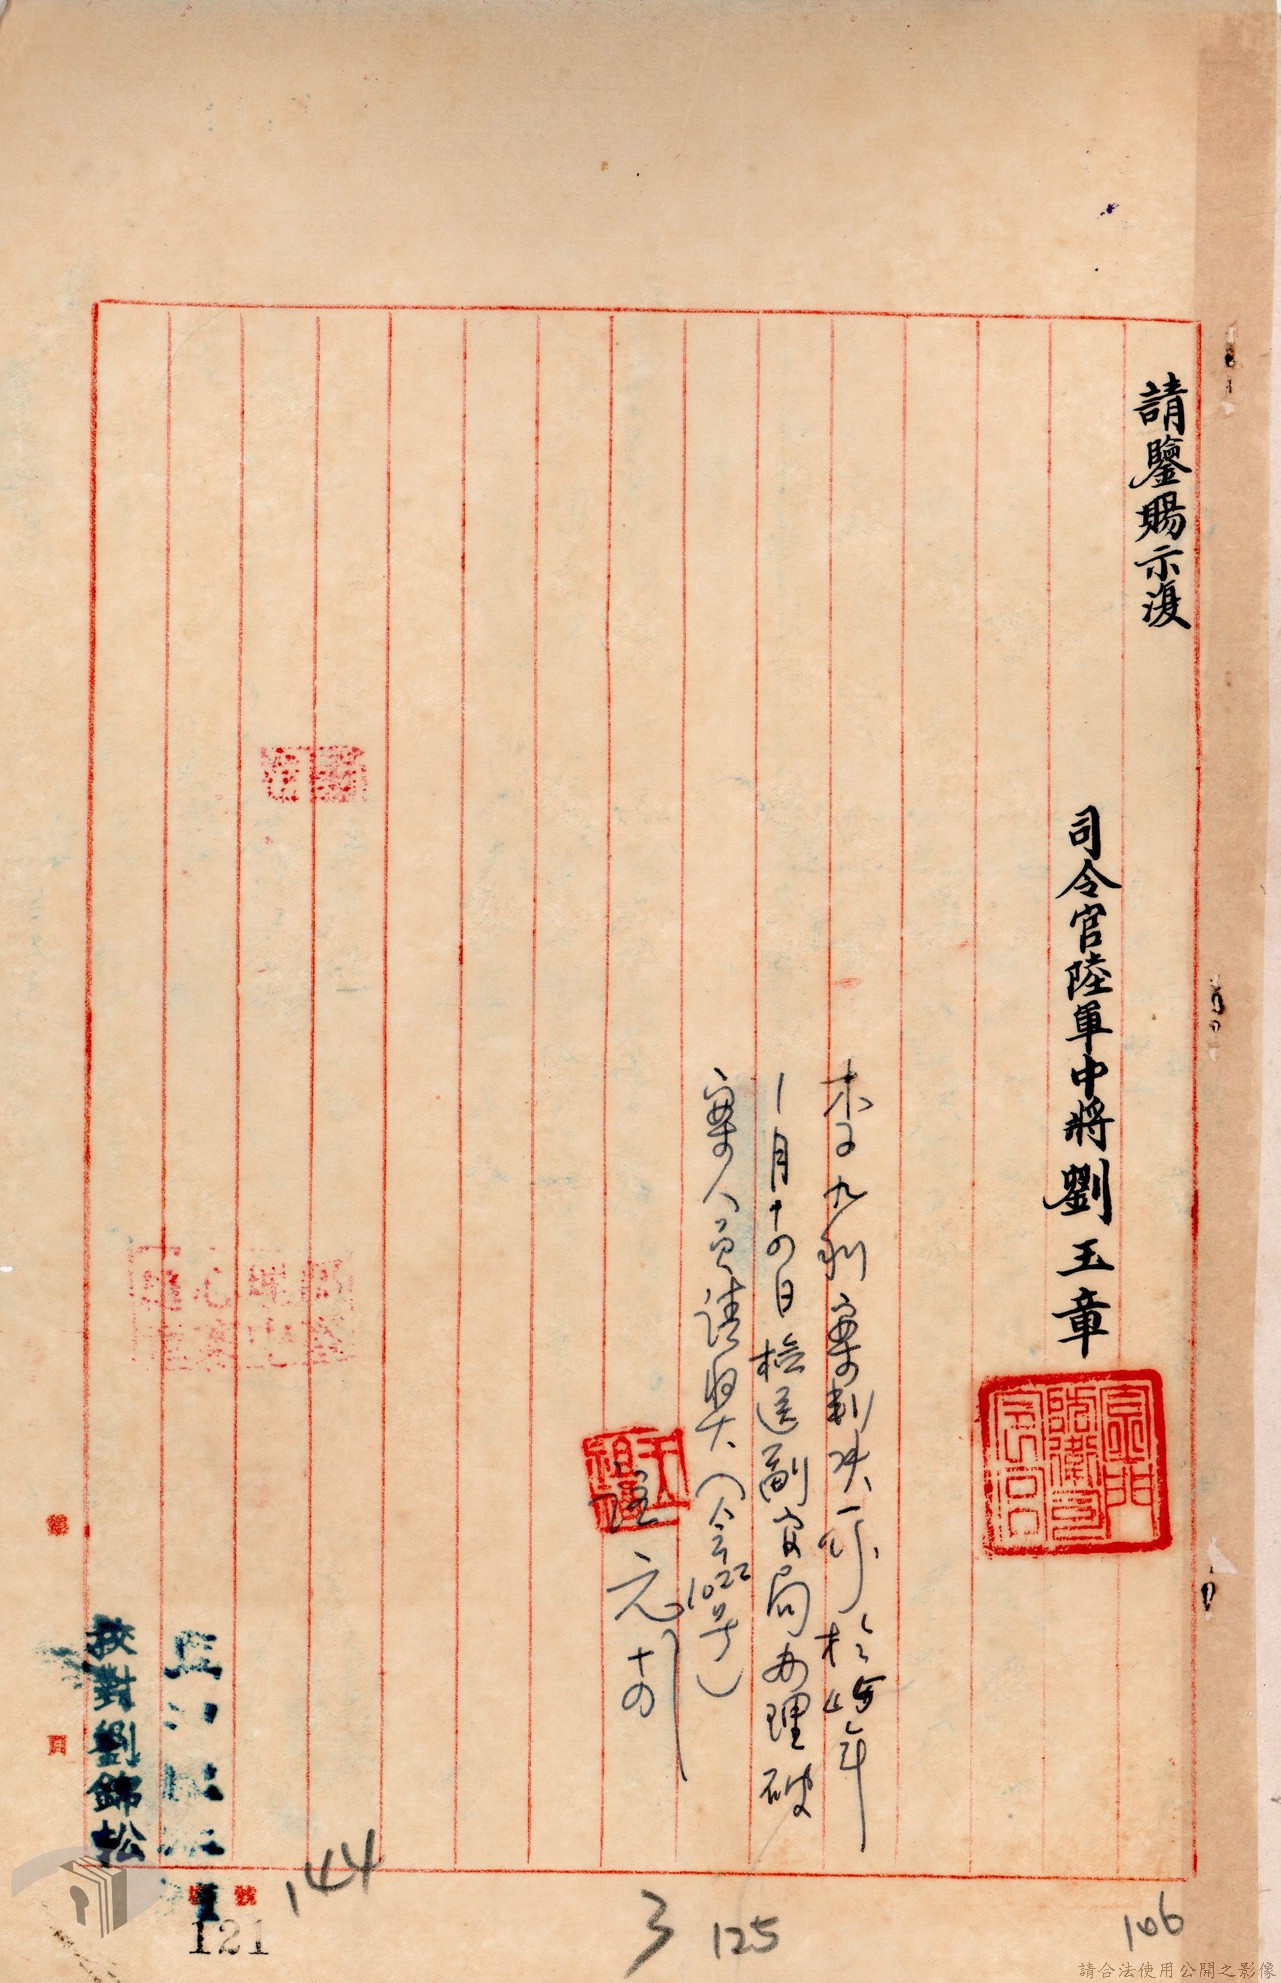 請鑒賜示復
司令官陸軍中將劉玉章
金門防衛司令官
李子九判案判決 於 年
一月十四日檢送副官局办理破
案人員請獎（令1022号）
元 十四
校對劉錦松
號
頁
144
121
3
125
106
請合法使用公開之影像